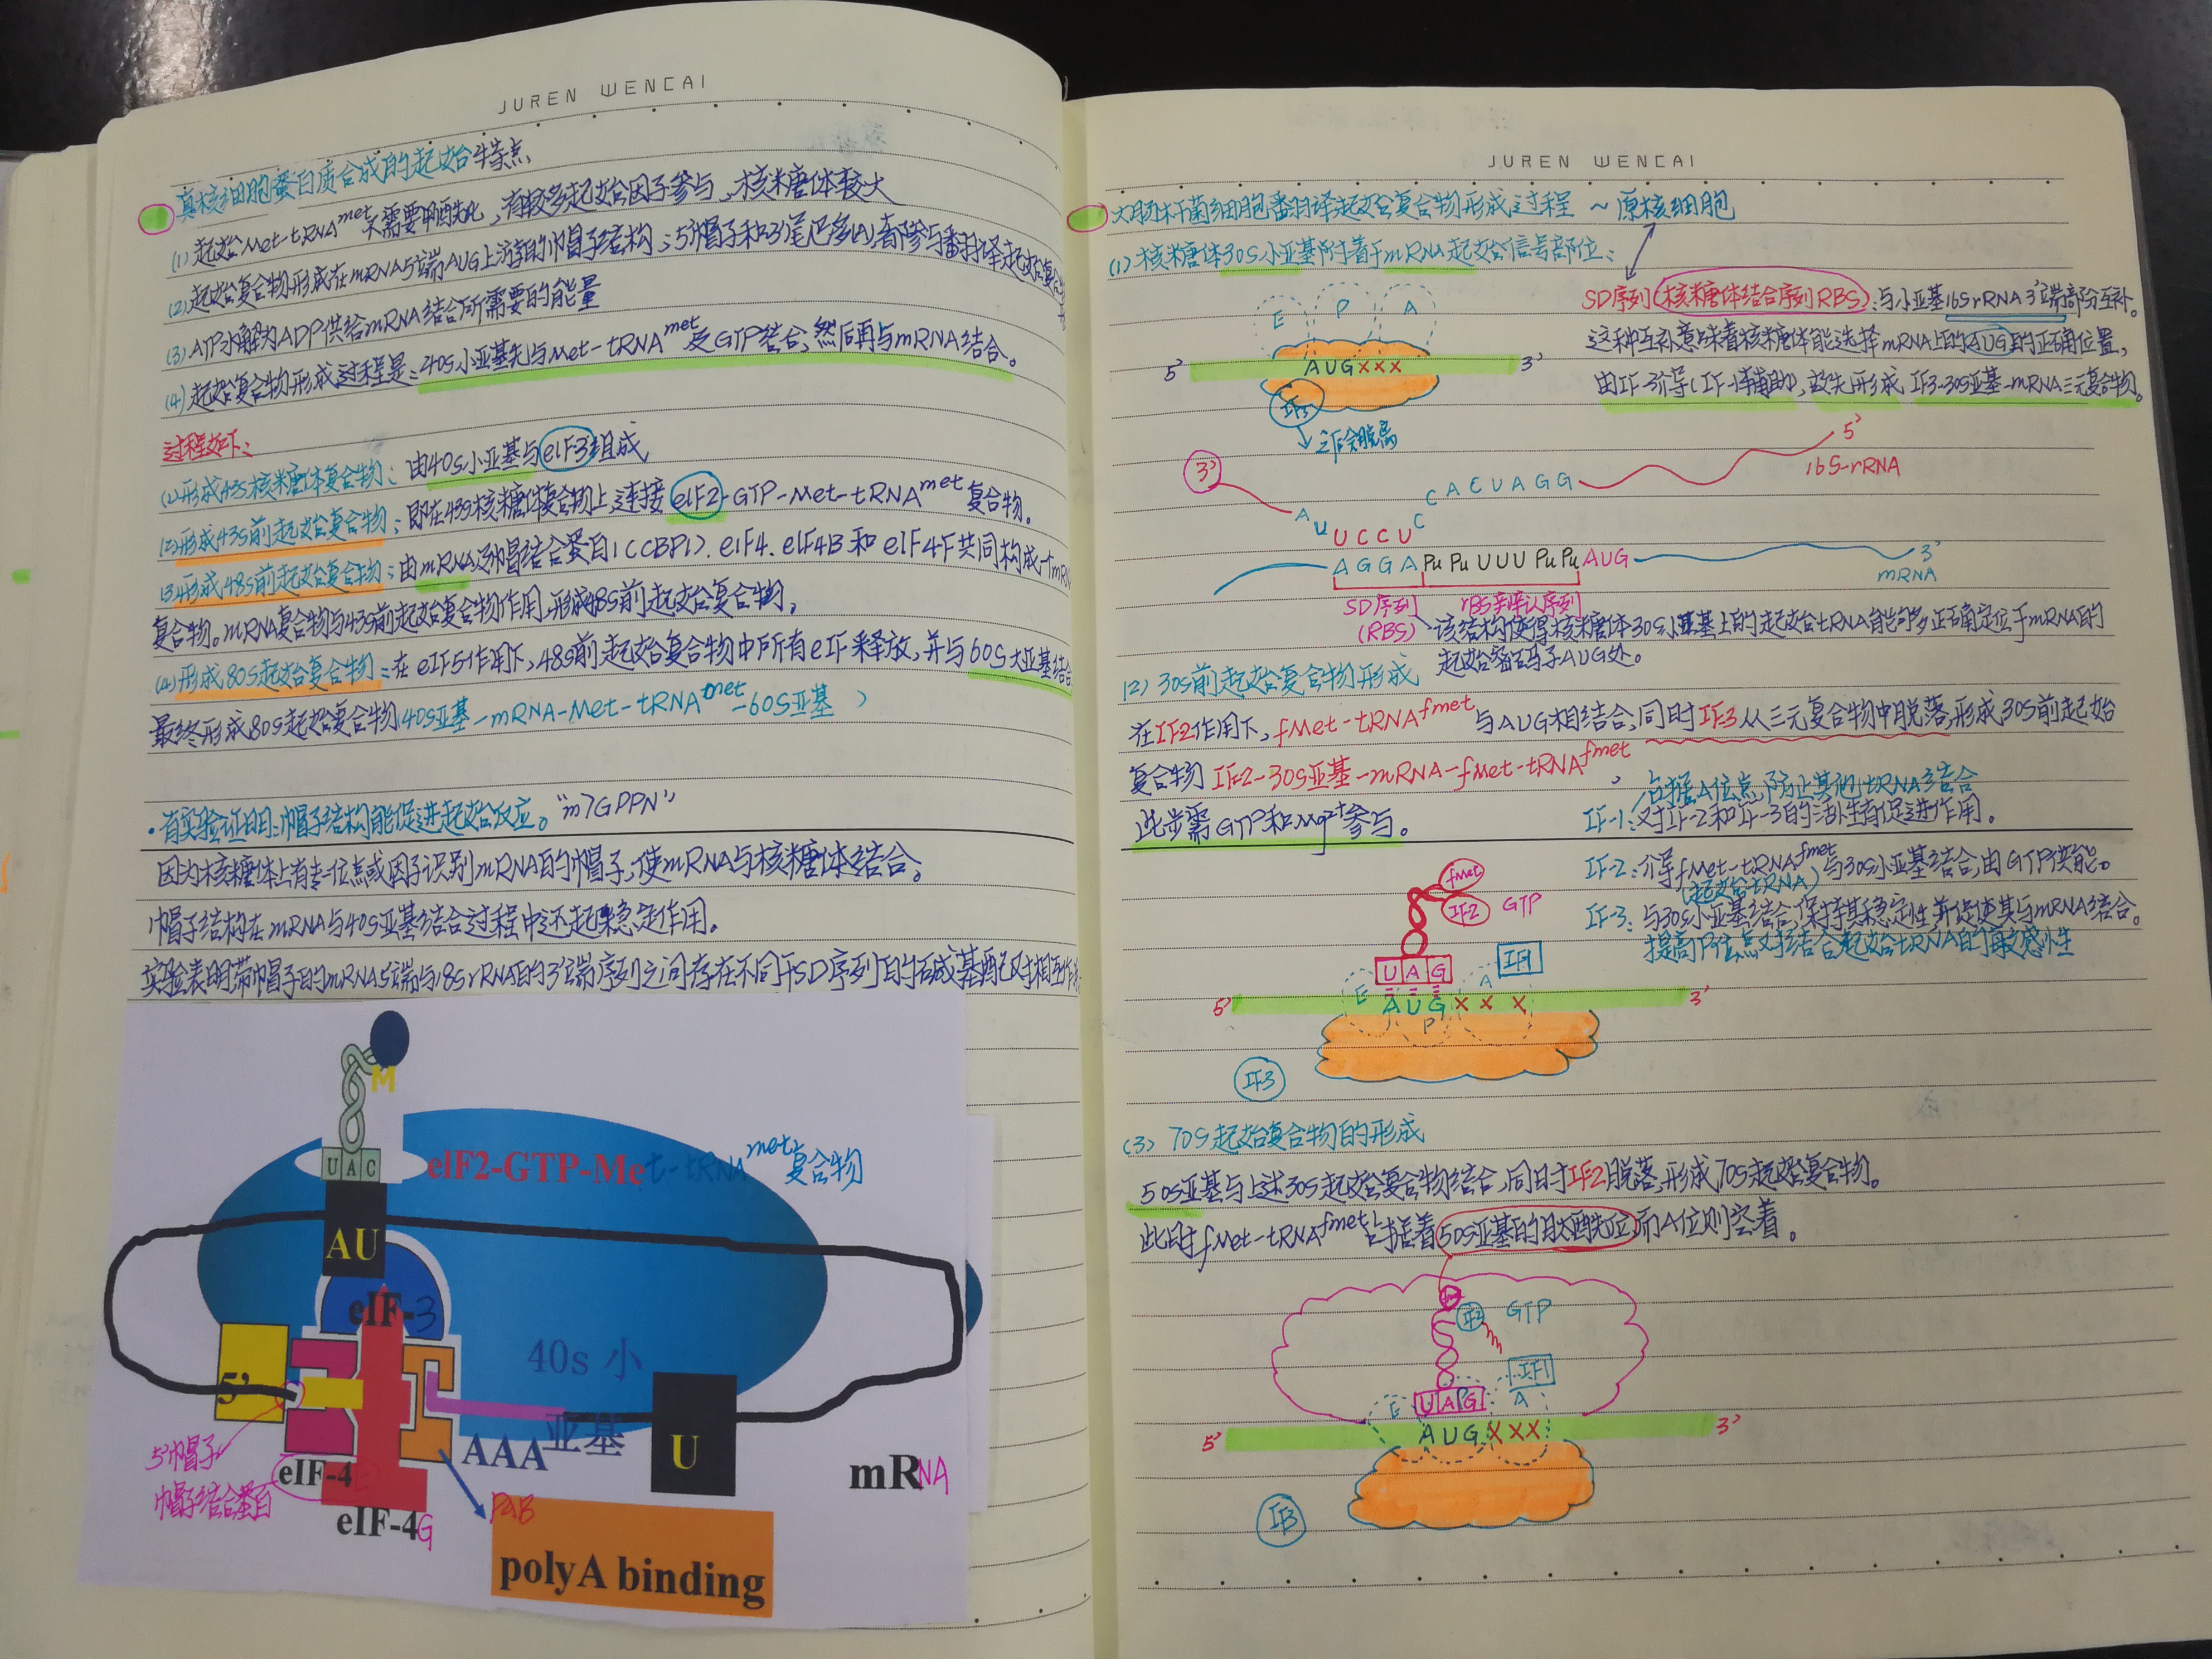 JUREN WENCAI
真核细胞蛋白质合成的起始特点
(1) 起始Met-tRNAmet不需要甲酰化，有较多起始因子参与，核糖体较大
(2) 起始复合物形成在mRNA5'端AUG上游的帽子结构；5'帽子和3'尾巴多(A)都参与翻译起始复合
(3) ATP水解为ADP供给mRNA结合所需要的能量
(4) 起始复合物形成过程是：40S小亚基先与Met-tRNAmet及GTP结合，然后再与mRNA结合。
过程如下：
(1)形成43S核糖体复合物：由40S小亚基与eIF3组成
(2)形成43S前起始复合物：即在43S核糖体复合物上，连接eIF2-GTP-Met-tRNAmet复合物。
(3)形成48S前起始复合物：由mRNA及帽结合蛋白1(CBP1)、eIF4、eIF4B和eIF4F共同构成一个mRNA
复合物。mRNA复合物与43S前起始复合物作用，形成48S前起始复合物，
(4)形成80S起始复合物：在eIF5作用下，48S前起始复合物中所有eIF释放，并与60S大亚基结合
最终形成80S起始复合物(40S亚基-mRNA-Met-tRNAmet-60S亚基)
·有实验证明：帽子结构能促进起始反应。"m7GPPN"
因为核糖体上有专一位点或因子识别mRNA的帽子，使mRNA与核糖体结合。
帽子结构在mRNA与40S亚基结合过程中还起稳定作用。
实验表明带帽子的mRNA5'端与18SrRNA的3'端序列之间存在不同于SD序列的碱基配对相互作
M
UAC
eIF2-GTP-Met-tRNAmet复合物
AU
eIF-3
40s 小
5'
亚基
AAA
U
mRNA
5'帽子
帽子结合蛋白
eIF-4
eIF-4G
PAB
polyA binding
JUREN WENCAI
大肠杆菌细胞翻译起始复合物形成过程 ~ 原核细胞
(1) 核糖体30S小亚基附着于mRNA起始信号部位：
SD序列(核糖体结合序列RBS)：与小亚基16SrRNA3'端部分互补。
这种互补意味着核糖体能选择mRNA上的AUG的正确位置，
由IF-3介导(IF-1辅助)，故先形成IF3-30S亚基-mRNA三元复合物。
E P A
5' AUGXXX 3'
IF3
之后会脱离
3' 5'
16S-rRNA
AUUCCUCCACUAGG
AGGAPuPuUUUPuPuAUG 3'
mRNA
SD序列 rBS辨认序列
(RBS) 该结构使得核糖体30S小亚基上的起始tRNA能够正确定位于mRNA的
起始密码子AUG处。
(2) 30S前起始复合物形成
在IF2作用下，fMet-tRNAfmet与AUG相结合；同时IF3从三元复合物中脱落，形成30S前起始
复合物 IF2-30S亚基-mRNA-fMet-tRNAfmet，
此步需GTP和Mg2+参与。
占据A位点，防止其他tRNA结合
IF-1：对IF-2和IF-3的活性有促进作用。
IF-2：介导fMet-tRNAfmet与30S小亚基结合，由GTP供能。
(起始tRNA)
IF-3：与30S小亚基结合，保持其稳定性并促使其与mRNA结合。
提高P位点对结合起始tRNA的敏感性
fmet
IF2 GTP
UAG
IF1
E P A
5' AUGXXX 3'
IF3
(3) 70S起始复合物的形成
50S亚基与上述30S起始复合物结合，同时IF2脱落，形成70S起始复合物。
此时fMet-tRNAfmet占据着50S亚基的肽酰位，而A位则空着。
IF2 GTP
IF1
E UAG A
5' AUGXXX 3'
IF3